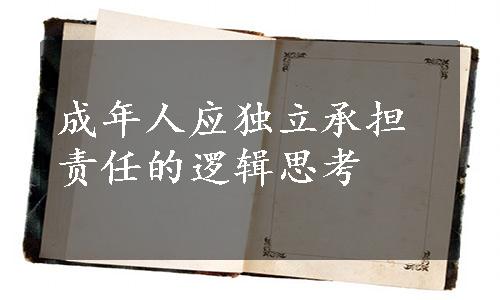 成年人应独立承担
责任的逻辑思考